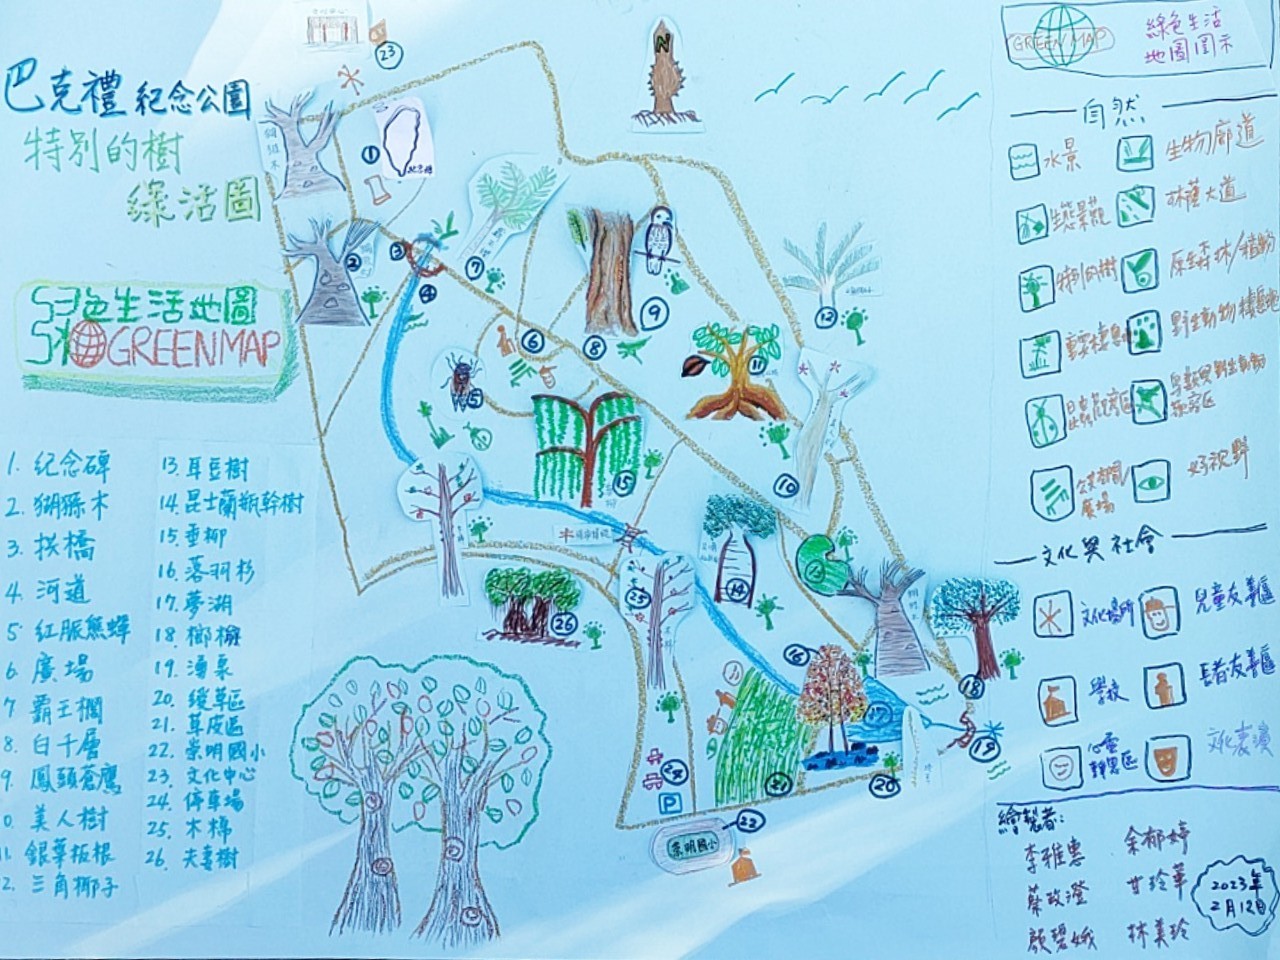 巴克禮紀念公園
特別的樹
綠活圖
綠色生活地圖
GREENMAP
1. 紀念碑
2. 猢猻木
3. 拱橋
4. 河道
5 紅脈熊蟬
6 廣場
7 霸王櫚
8. 白千層
9. 鳳頭蒼鷹
10. 美人樹
11. 銀葉板根
12. 三角椰子
13. 耳豆樹
14. 昆士蘭瓶幹樹
15. 垂柳
16. 落羽杉
17. 夢湖
18 榔榆
19. 湧泉
20. 綬草區
21. 草皮區
22. 崇明國小
23. 文化中心
24. 停車場
25. 木棉
26. 夫妻樹
N
23
1
2
3
4
7
9
8
6
5
12
11
10
15
14
13
26
25
16
17
18
19
20
21
24
P
22
崇明國小
GREEN MAP
綠色生活
地圖圖示
自然
水景
生物廊道
生態景觀
林蔭大道
特別的樹
原生森林/植物
重要棲息地
野生動物棲息地
昆蟲觀察區
公共空間/廣場
好視野
文化與社會
文化場所
兒童友善區
學校
長者友善區
心靈靜思區
文化表演
繪製者:
李雅惠
余郁婷
蔡政澄
甘玲華
顏碧娥
林美玲
2023年
2月12日